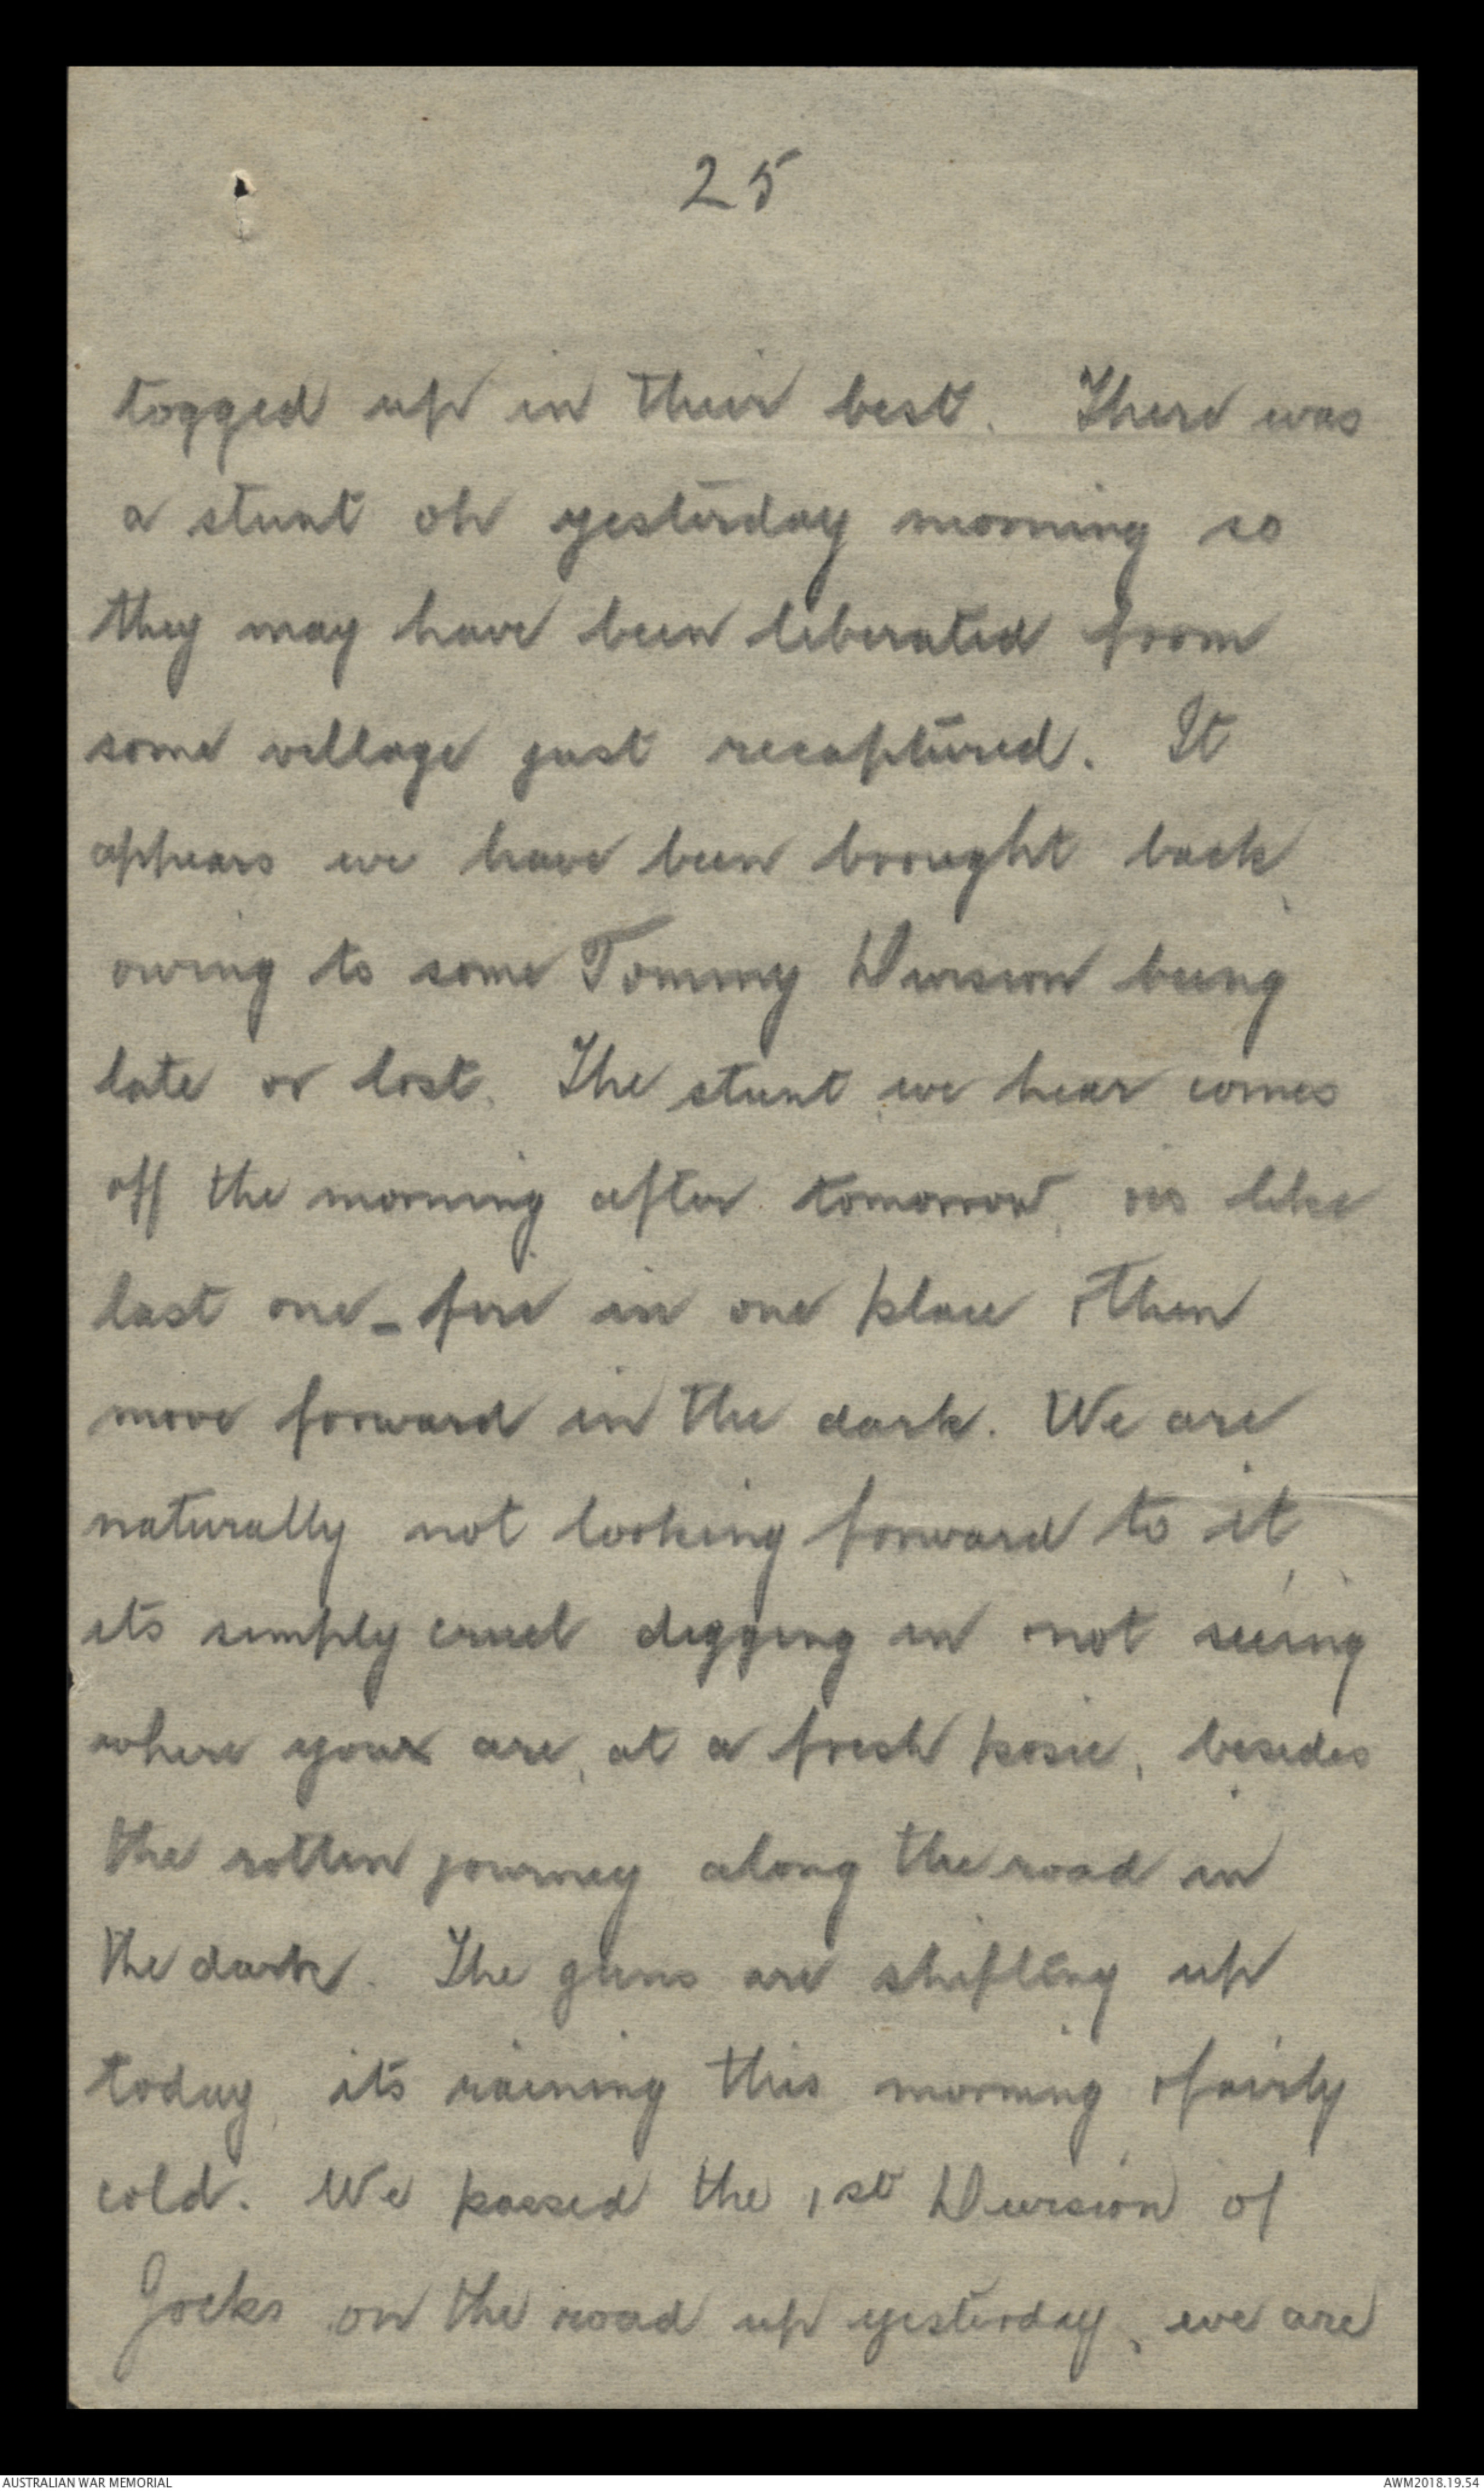 25
togged up in their best. There was
a stunt on yesterday morning so
they may have been liberated from
some village just recaptured. It
appears we have been brought back,
owing to some Tommy Division being
late or lost. The stunt we hear comes
off the morning after tomorrow, is like
last one - fire in one place & then
move forward in the dark. We are
naturally not looking forward to it,
its simply cruel digging in not seeing
where your are, at a fresh posie, besides
the rotten journey along the road in
the dark. The guns are shifting up
today, its raining this morning & fairly
cold. We passed the 1st Division of
Jocks on the road up yesterday, we are
AUSTRALIAN WAR MEMORIAL
AWM2018.19.54